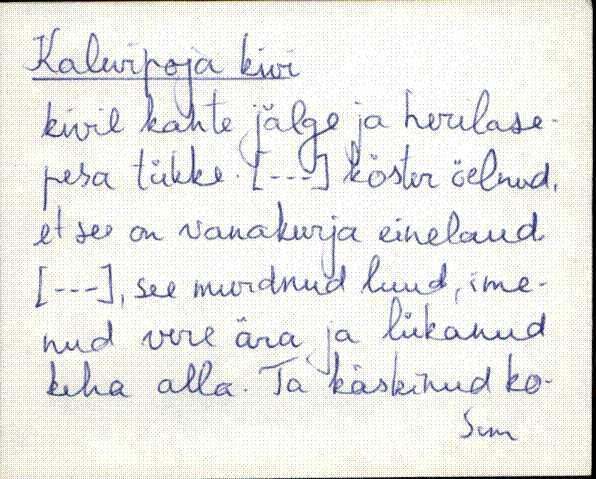 Kalevipoja kivi
kivil kahte jälge ja herilase-
pesa tükke. [---] köster öelnud,
et see on vanakurja einelaud
[---], see murdnud luud, ime-
nud vere ära ja lükanud
keha alla. Ta käskinud ko-
Sim